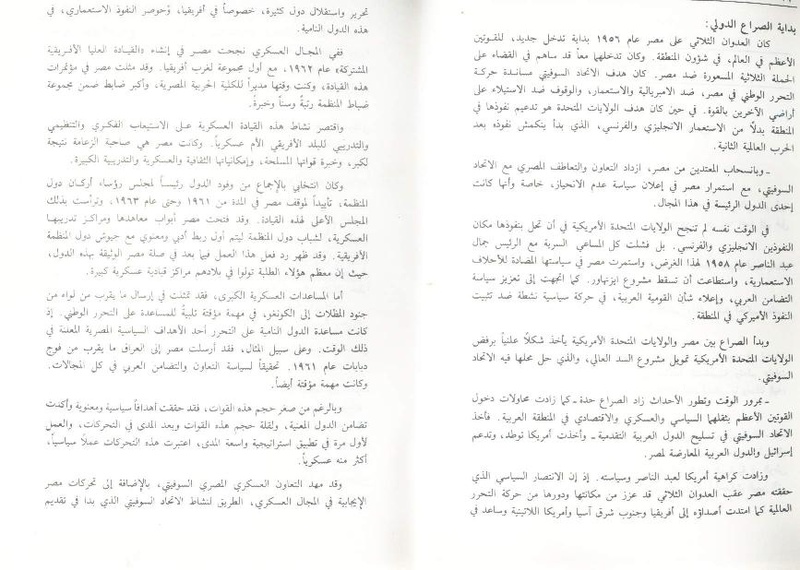 بداية الصراع الدولي:
كان العدوان الثلاثي على مصر عام ١٩٥٦ بداية تدخل جديد، للقوتين
الأعظم في العالم، في شؤون المنطقة. وكان تدخلهما معاً قد ساهم في القضاء على
الحملة الثلاثية المسعورة ضد مصر. كان هدف الاتحاد السوفيتي مساندة حركة
التحرر الوطني في مصر، ضد الامبريالية والاستعمار، والوقوف ضد الاستيلاء على
أراضي الآخرين بالقوة. في حين كان هدف الولايات المتحدة هو تدعيم نفوذها في
المنطقة بدلاً من الاستعمار الانجليزي والفرنسي، الذي بدأ ينكمش نفوذه بعد
الحرب العالمية الثانية.
ـ وبانسحاب المعتدين من مصر، ازداد التعاون والتعاطف المصري مع الاتحاد
السوفيتي، مع استمرار مصر في إعلان سياسة عدم الانحياز، خاصة وأنها كانت
إحدى الدول الرئيسة في هذا المجال.
في الوقت نفسه لم تنجح الولايات المتحدة الأمريكية في أن تحل بنفوذها مكان
النفوذين الانجليزي والفرنسي. بل فشلت كل المساعي السرية مع الرئيس جمال
عبد الناصر عام ١٩٥٨ لهذا الغرض، واستمرت مصر في سياستها المضادة للأحلاف
الاستعمارية، واستطاعت أن تسقط مشروع ايزنهاور. كما اتجهت إلى تعزيز سياسة
التضامن العربي، وإعلاء شأن القومية العربية، في حركة سياسية نشطة ضد تثبيت
النفوذ الأميركي في المنطقة.
وبدأ الصراع بين مصر والولايات المتحدة الأمريكية يأخذ شكلاً علنياً برفض
الولايات المتحدة الأمريكية تمويل مشروع السد العالي، والذي حل محلها فيه الاتحاد
السوفيتي.
ـ بمرور الوقت وتطور الأحداث زاد الصراع حدة ـ كما زادت محاولات دخول
القوتين الأعظم بثقلهما السياسي والعسكري والاقتصادي في المنطقة العربية. فأخذ
الاتحاد السوفيتي في تسليح الدول العربية التقدمية ـ وأخذت أمريكا توطد، وتدعم
إسرائيل والدول العربية المعارضة لمصر.
وزادت كراهية أمريكا لعبد الناصر وسياسته. إذ إن الانتصار السياسي الذي
حققته مصر عقب العدوان الثلاثي قد عزز من مكانتها ودورها من حركة التحرر
العالمية كما امتدت أصداؤه إلى أفريقيا وجنوب شرق آسيا وأمريكا اللاتينية وساعد في
تحرير واستقلال دول كثيرة، خصوصاً في أفريقيا، وحُوصر النفوذ الاستعماري، في
هذه الدول النامية.
ففي المجال العسكري نجحت مصر في إنشاء «القيادة العليا الأفريقية
المشتركة» عام ١٩٦٢، مع أول مجموعة لغرب أفريقيا. وقد مثلت مصر في مؤتمرات
هذه القيادة، وكنت وقتها مديراً للكلية الحربية المصرية، وأكبر ضابط ضمن مجموعة
ضباط المنظمة رتبةً وسناً وخبرةً.
واقتصر نشاط هذه القيادة العسكرية على الاستيعاب الفكري والتنظيمي
والتدريبي للبلد الأفريقي الأم عسكرياً. وكانت مصر هي صاحبة الزعامة نتيجة
لكبر، وخبرة قواتها المسلحة، وإمكانياتها الثقافية والعسكرية والتدريبية الكبيرة.
وكان انتخابي بالإجماع من وفود الدول رئيساً لمجلس رؤساء أركان دول
المنظمة، تأييداً لموقف مصر في المدة من ١٩٦١ وحتى عام ١٩٦٣، وترأست بذلك
المجلس الأعلى لهذه القيادة. وقد فتحت مصر أبواب معاهدها ومراكز تدريبها
العسكرية، لشباب دول المنظمة ليتم أول ربط أدبي ومعنوي مع جيوش دول المنظمة
الأفريقية. وقد ظهر رد فعل هذا العمل فيما بعد في صلة مصر الوثيقة بهذه الدول،
حيث إن معظم هؤلاء الطلبة تولوا في بلادهم مراكز قيادية عسكرية كبيرة.
أما المساعدات العسكرية الكبرى، فقد تمثلت في إرسال ما يقرب من لواء من
جنود المظلات إلى الكونغو، في مهمة مؤقتة تلبيةً للمساعدة على التحرر الوطني. إذ
كانت مساعدة الدول النامية على التحرر أحد الأهداف السياسية المصرية المعلنة في
ذلك الوقت. وعلى سبيل المثال، فقد أرسلت مصر إلى العراق ما يقرب من فوج
دبابات عام ١٩٦١، تحقيقاً لسياسة التعاون والتضامن العربي في كل المجالات.
وكانت مهمة مؤقتة أيضاً.
وبالرغم من صغر حجم هذه القوات، فقد حققت أهدافاً سياسية ومعنوية وأكدت
تضامن الدول المعنية، ولقلة حجم هذه القوات وبعد المدى في التحركات، والعمل
لأول مرة في تطبيق استراتيجية واسعة المدى، اعتبرت هذه التحركات عملاً سياسياً،
أكثر منه عسكرياً.
وقد مهد التعاون العسكري المصري السوفيتي، بالإضافة إلى تحركات مصر
الإيجابية في المجال العسكري، الطريق لنشاط الاتحاد السوفيتي الذي بدا في تقديم